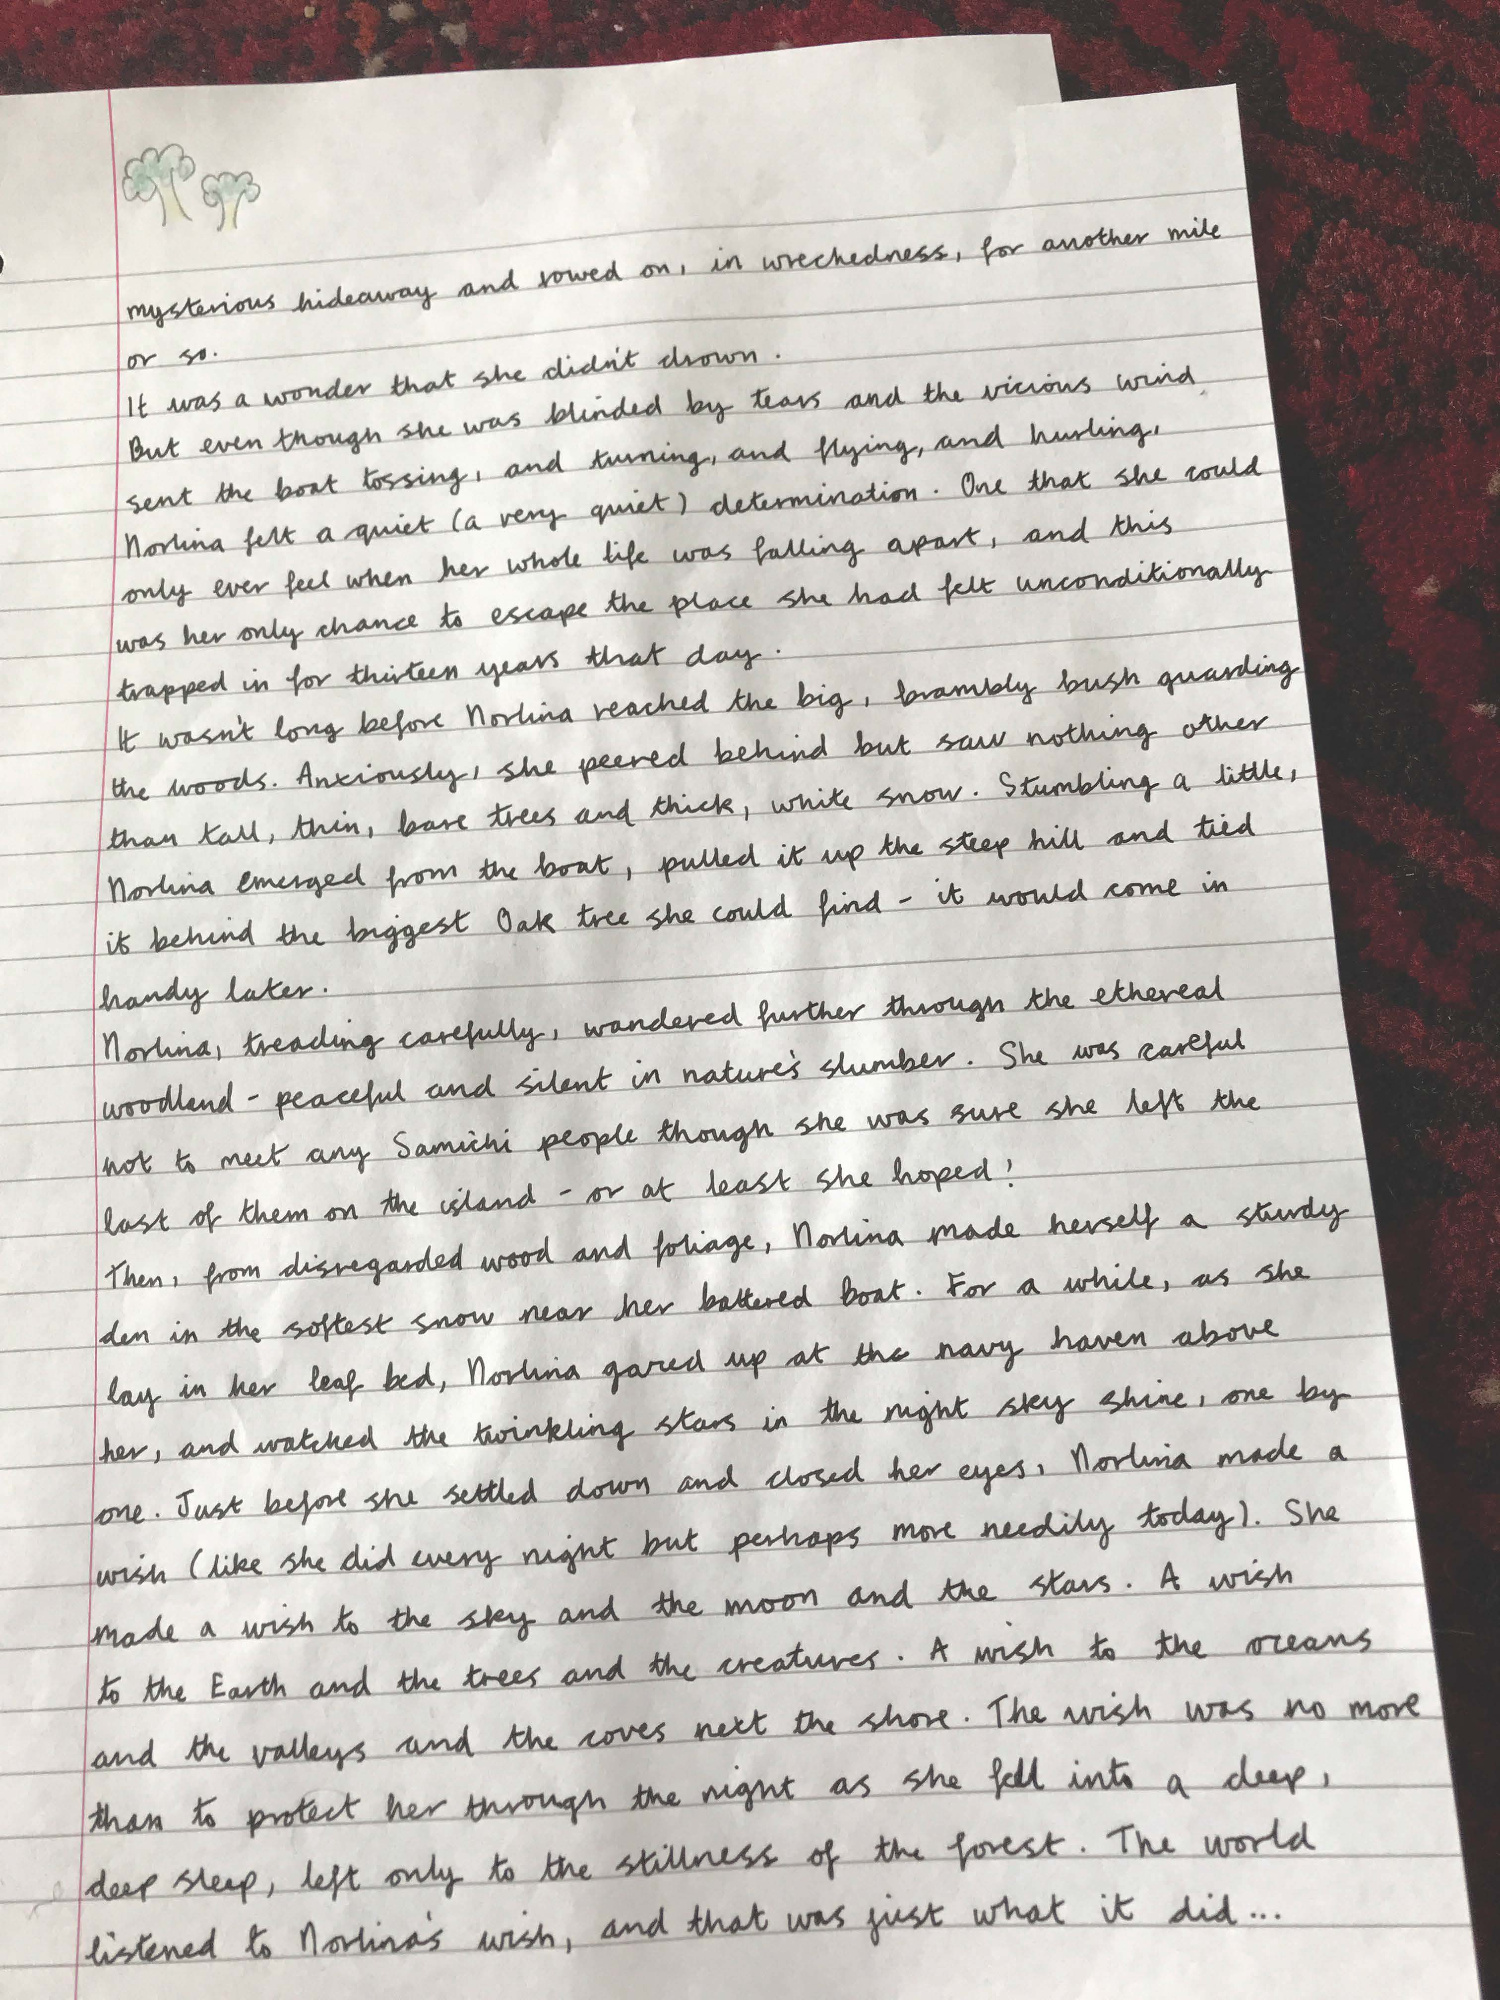 mysterious hideaway and rowed on, in wrechedness, for another mile
or so.
It was a wonder that she didn't drown.
But even though she was blinded by tears and the vicious wind
sent the boat tossing, and turning, and flying, and hurling,
Norlina felt a quiet (a very quiet) determination. One that she could
only ever feel when her whole life was falling apart, and this
was her only chance to escape the place she had felt unconditionally
trapped in for thirteen years that day.
It wasn't long before Norlina reached the big, brambly bush guarding
the woods. Anxiously, she peered behind but saw nothing other
than tall, thin, bare trees and thick, white snow. Stumbling a little,
Norlina emerged from the boat, pulled it up the steep hill and tied
it behind the biggest Oak tree she could find - it would come in
handy later.
Norlina, treading carefully, wandered further through the ethereal
woodland - peaceful and silent in nature's slumber. She was careful
not to meet any Samichi people though she was sure she left the
last of them on the island - or at least she hoped!
Then, from disregarded wood and foliage, Norlina made herself a sturdy
den in the softest snow near her battered boat. For a while, as she
lay in her leaf bed, Norlina gazed up at the navy haven above
her, and watched the twinkling stars in the night sky shine, one by
one. Just before she settled down and closed her eyes, Norlina made a
wish (like she did every night but perhaps more needily today). She
made a wish to the sky and the moon and the stars. A wish
to the Earth and the trees and the creatures. A wish to the oceans
and the valleys and the coves next the shore. The wish was no more
than to protect her through the night as she fell into a deep,
deep sleep, left only to the stillness of the forest. The world
listened to Norlina's wish, and that was just what it did...